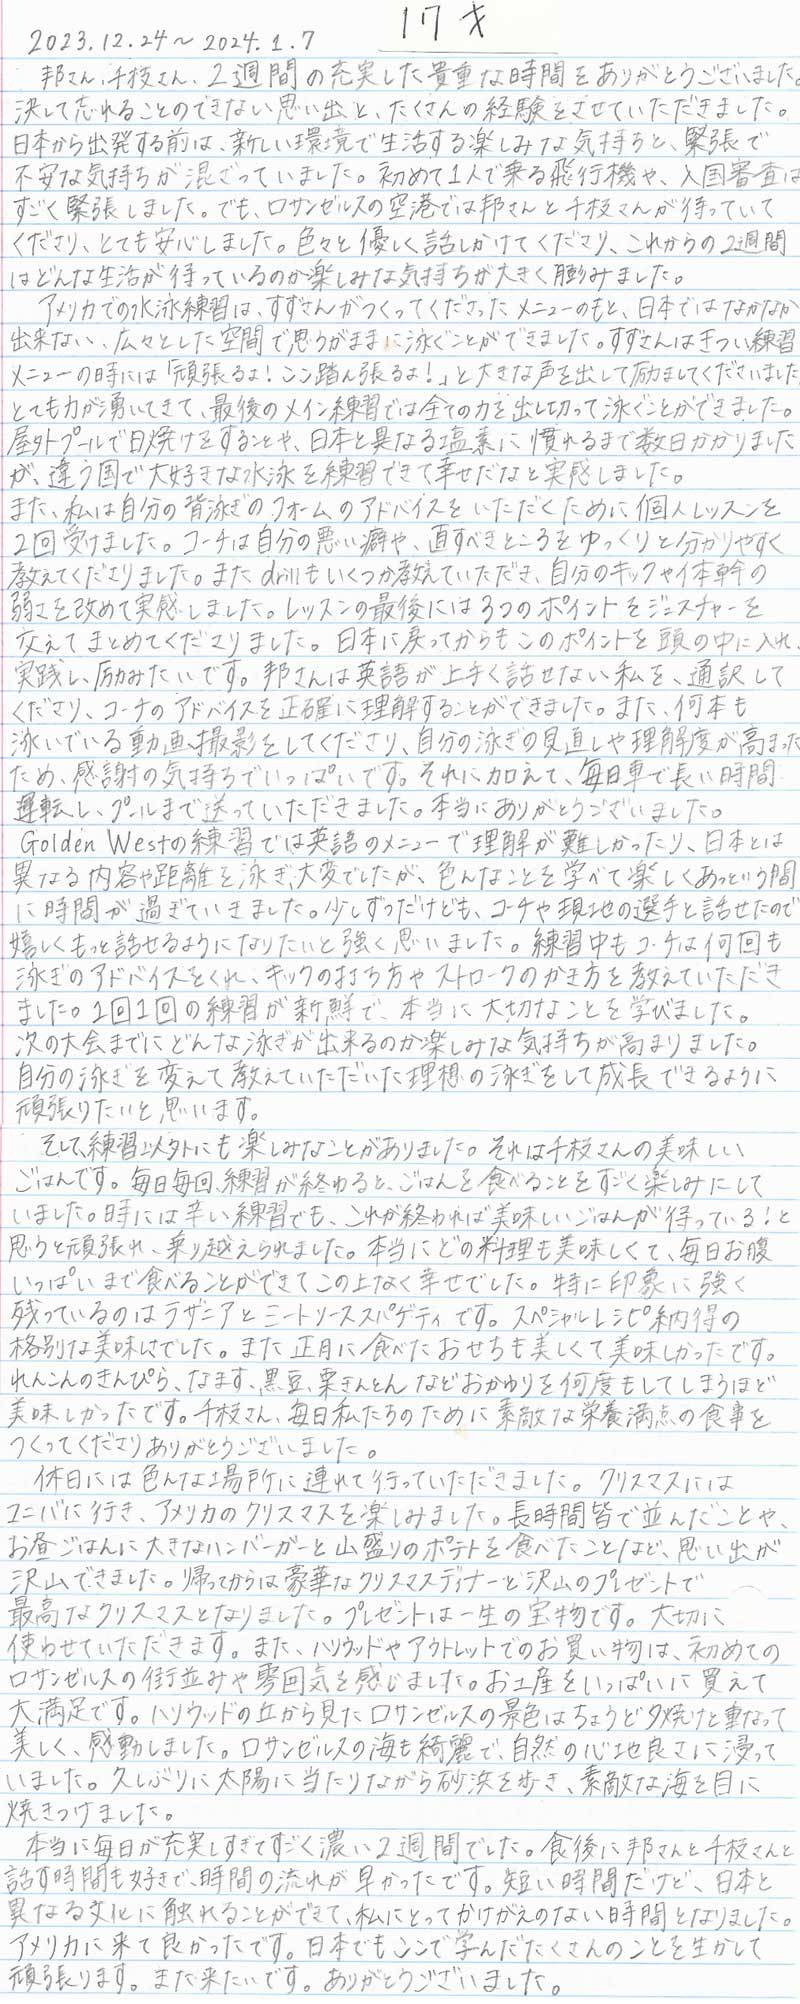 17才
2023.12.24～2024.1.7
邦さん、千枝さん、2週間の充実した貴重な時間をありがとうございました。
決して忘れることのできない思い出と、たくさんの経験をさせていただきました。
日本から出発する前は、新しい環境で生活する楽しみな気持ちと、緊張で
不安な気持ちが混ざっていました。初めて1人で乗る飛行機や、入国審査は
すごく緊張しました。でも、ロサンゼルスの空港では邦さんと千枝さんが待っていて
くださり、とても安心しました。色々と優しく話しかけてくださり、これからの2週間
はどんな生活が待っているのか楽しみな気持ちが大きく膨みました。
アメリカでの水泳練習は、すずさんがつくってくださったメニューのもと、日本ではなかなか
出来ない、広々とした空間で思うがままに泳ぐことができました。すずさんはきつい練習
メニューの時には「頑張るよ!ここ踏ん張るよ!」と大きな声を出して励ましてくださいました
とても力が湧いてきて、最後のメイン練習では全ての力を出し切って泳ぐことができました。
屋外プールで日焼けをすることや、日本と異なる塩素に慣れるまで数日かかりました
が、違う国で大好きな水泳を練習できて幸せだなと実感しました。
また、私は自分の背泳ぎのフォームのアドバイスをいただくために個人レッスンを
2回受けました。コーチは自分の悪い癖や、直すべきところをゆっくりと分かりやすく
教えてくださりました。またdrillもいくつか教えていただき、自分のキックや体幹の
弱さを改めて実感しました。レッスンの最後には3つのポイントをジェスチャーを
交えてまとめてくださりました。日本に戻ってからもこのポイントを頭の中に入れ、
実践し、励みたいです。邦さんは英語が上手く話せない私を、通訳して
くださり、コーチのアドバイスを正確に理解することができました。また、何本も
泳いでいる動画撮影をしてくださり、自分の泳ぎの見直しや理解度が高まった
ため、感謝の気持ちでいっぱいです。それに加えて、毎日車で長い時間
運転し、プールまで送っていただきました。本当にありがとうございました。
Golden Westの練習では英語のメニューで理解が難しかったり、日本とは
異なる内容や距離を泳ぎ、大変でしたが、色んなことを学べて楽しくあっという間
に時間が過ぎていきました。少しずつだけども、コーチや現地の選手と話せたので
嬉しくもっと話せるようになりたいと強く思いました。練習中もコーチは何回も
泳ぎのアドバイスをくれ、キックの打ち方やストロークのかき方を教えていただき
ました。1回1回の練習が新鮮で、本当に大切なことを学びました。
次の大会までにどんな泳ぎが出来るのか楽しみな気持ちが高まりました。
自分の泳ぎを変えて教えていただいた理想の泳ぎをして成長できるように
頑張りたいと思います。
そして、練習以外にも楽しみなことがありました。それは千枝さんの美味しい
ごはんです。毎日毎回、練習が終わると、ごはんを食べることをすごく楽しみにして
いました。時には辛い練習でも、これが終われば美味しいごはんが待っている!と
思うと頑張れ、乗り越えられました。本当にどの料理も美味しくて、毎日お腹
いっぱいまで食べることができてこの上なく幸せでした。特に印象に強く
残っているのはラザニアとミートソーススパゲティです。スペシャルレシピ納得の
格別な美味しさでした。また正月に食べたおせちも美しくて美味しかったです。
れんこんのきんぴら、なます、黒豆、栗きんとんなどおかわりを何度もしてしまうほど
美味しかったです。千枝さん、毎日私たちのために素敵な栄養満点の食事を
つくってくださりありがとうございました。
休日には色んな場所に連れて行っていただきました。クリスマスには
ユニバに行き、アメリカのクリスマスを楽しみました。長時間皆で並んだことや、
お昼ごはんに大きなハンバーガーと山盛りのポテトを食べたことなど、思い出が
沢山できました。帰ってからは豪華なクリスマスディナーと沢山のプレゼントで
最高なクリスマスとなりました。プレゼントは一生の宝物です。大切に
使わせていただきます。また、ハリウッドやアウトレットでのお買い物は、初めての
ロサンゼルスの街並みや雰囲気を感じました。お土産をいっぱいに買えて
大満足です。ハリウッドの丘から見たロサンゼルスの景色はちょうど夕焼けと重なって
美しく、感動しました。ロサンゼルスの海も綺麗で、自然の心地良さに浸って
いました。久しぶりに太陽に当たりながら砂浜を歩き、素敵な海を目に
焼きつけました。
本当に毎日が充実しすぎてすごく濃い2週間でした。食後に邦さんと千枝さんと
話す時間も好きで、時間の流れが早かったです。短い時間だけど、日本と
異なる文化に触れることができて、私にとってかけがえのない時間となりました。
アメリカに来て良かったです。日本でもここで学んだたくさんのことを生かして
頑張ります。また来たいです。ありがとうございました。